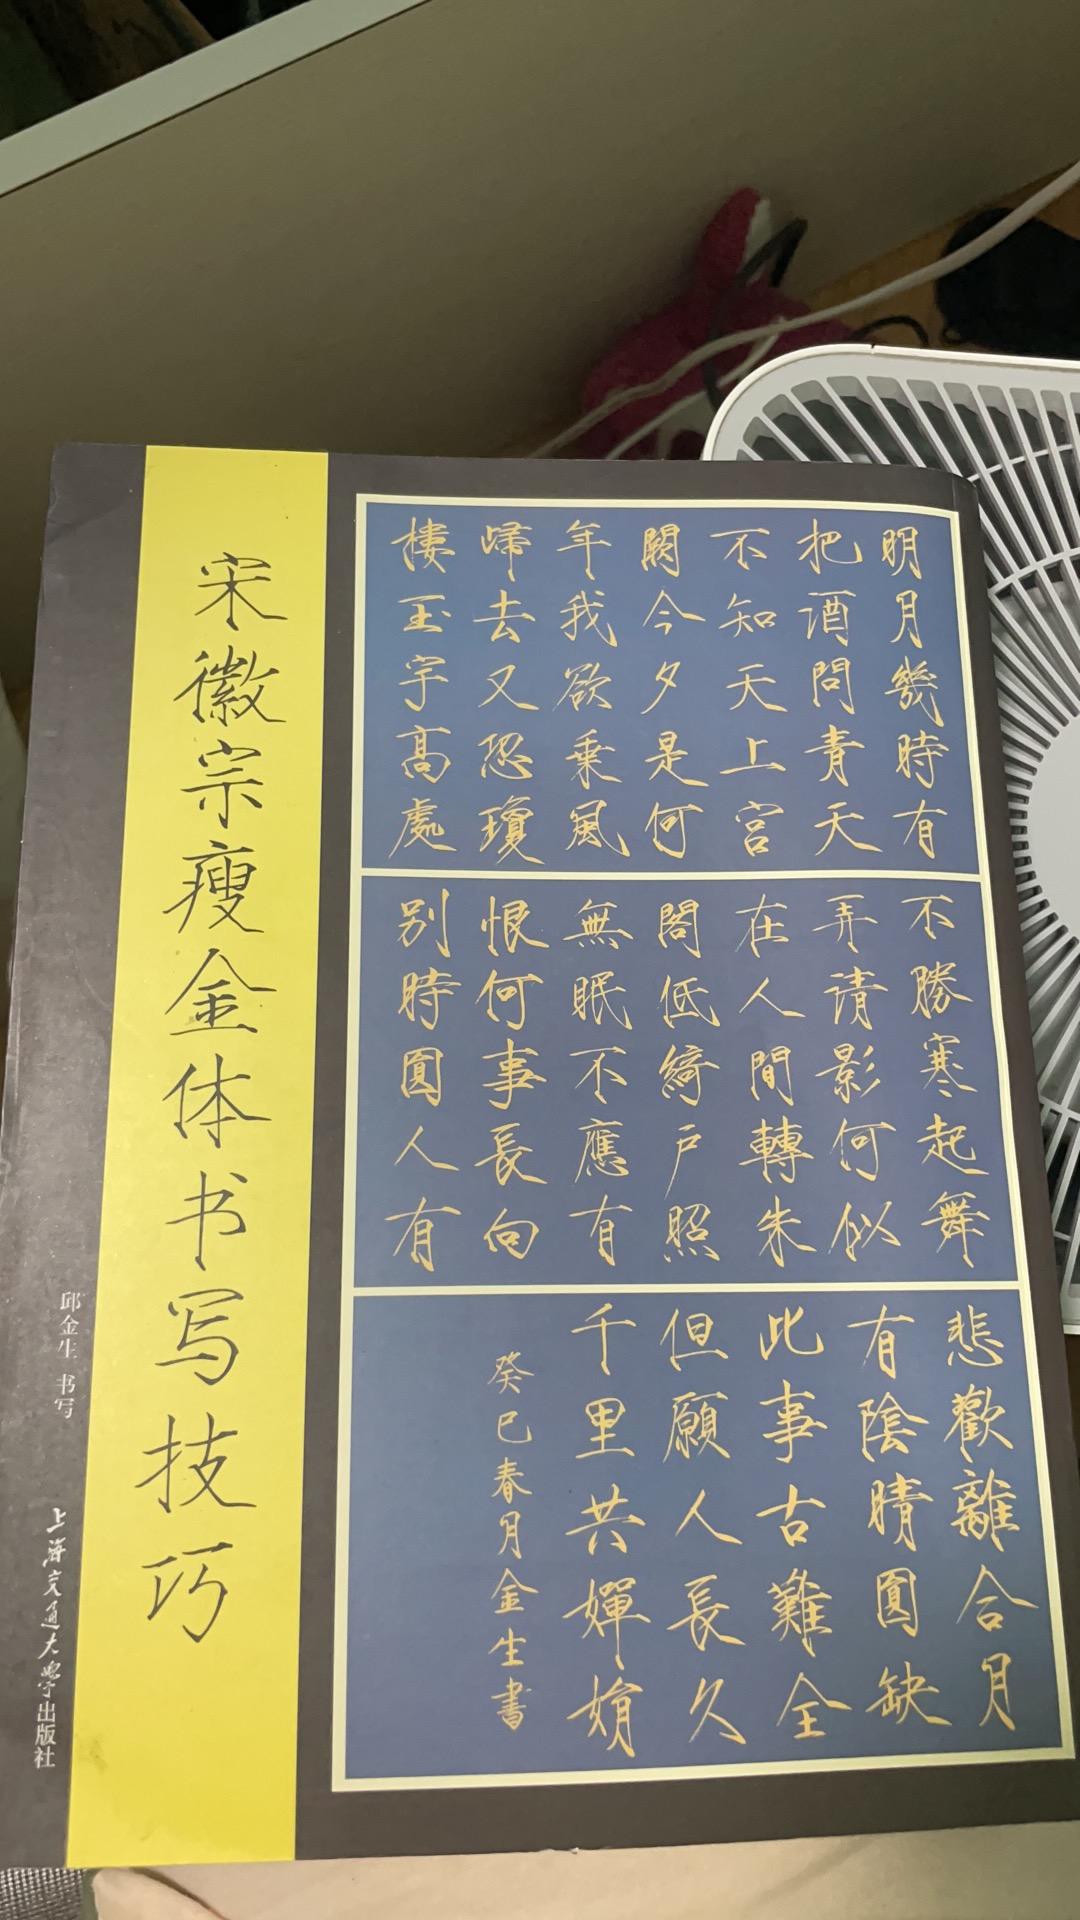 宋徽宗瘦金体书写技巧
邱金生 书写
上海交通大学出版社
明月幾時有
把酒問青天
不知天上宫
闕今夕是何
年我欲乗風
歸去又恐瓊
樓玉宇高處
不勝寒起舞
弄请影何似
在人間轉朱
閣低綺户照
無眠不應有
恨何事長向
别時圓人有
悲歡離合月
有陰晴圓缺
此事古難全
但願人長久
千里共嬋娟
癸巳春月金生書